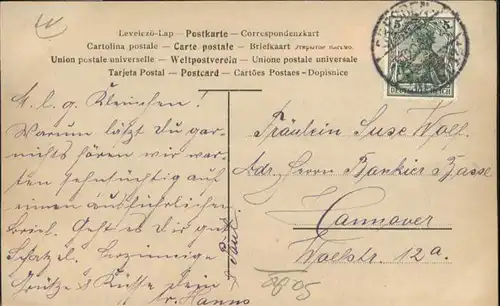 Levelező-Lap — Postkarte — Correspondenzkart
Cartolina postale — Carte postale — Briefkaart
Union postale universelle — Weltpostverein — Unione postale universale
Tarjeta Postal — Postcard — Cartões Postaes - Dopisnice
DRESDEN
M. l. g. Kleinchen!
Warum läßt du gar-
nichts hören wir war-
ten sehnsüchtig auf
einen ausführlichen
Brief. Geht es dir gut
Schatzl. Herzinnige
Grüße & Küsse dein
Hanno
Paul.
Fräulein Suse Wolf.
Adr. Herrn Bankier
Hannover
12a.